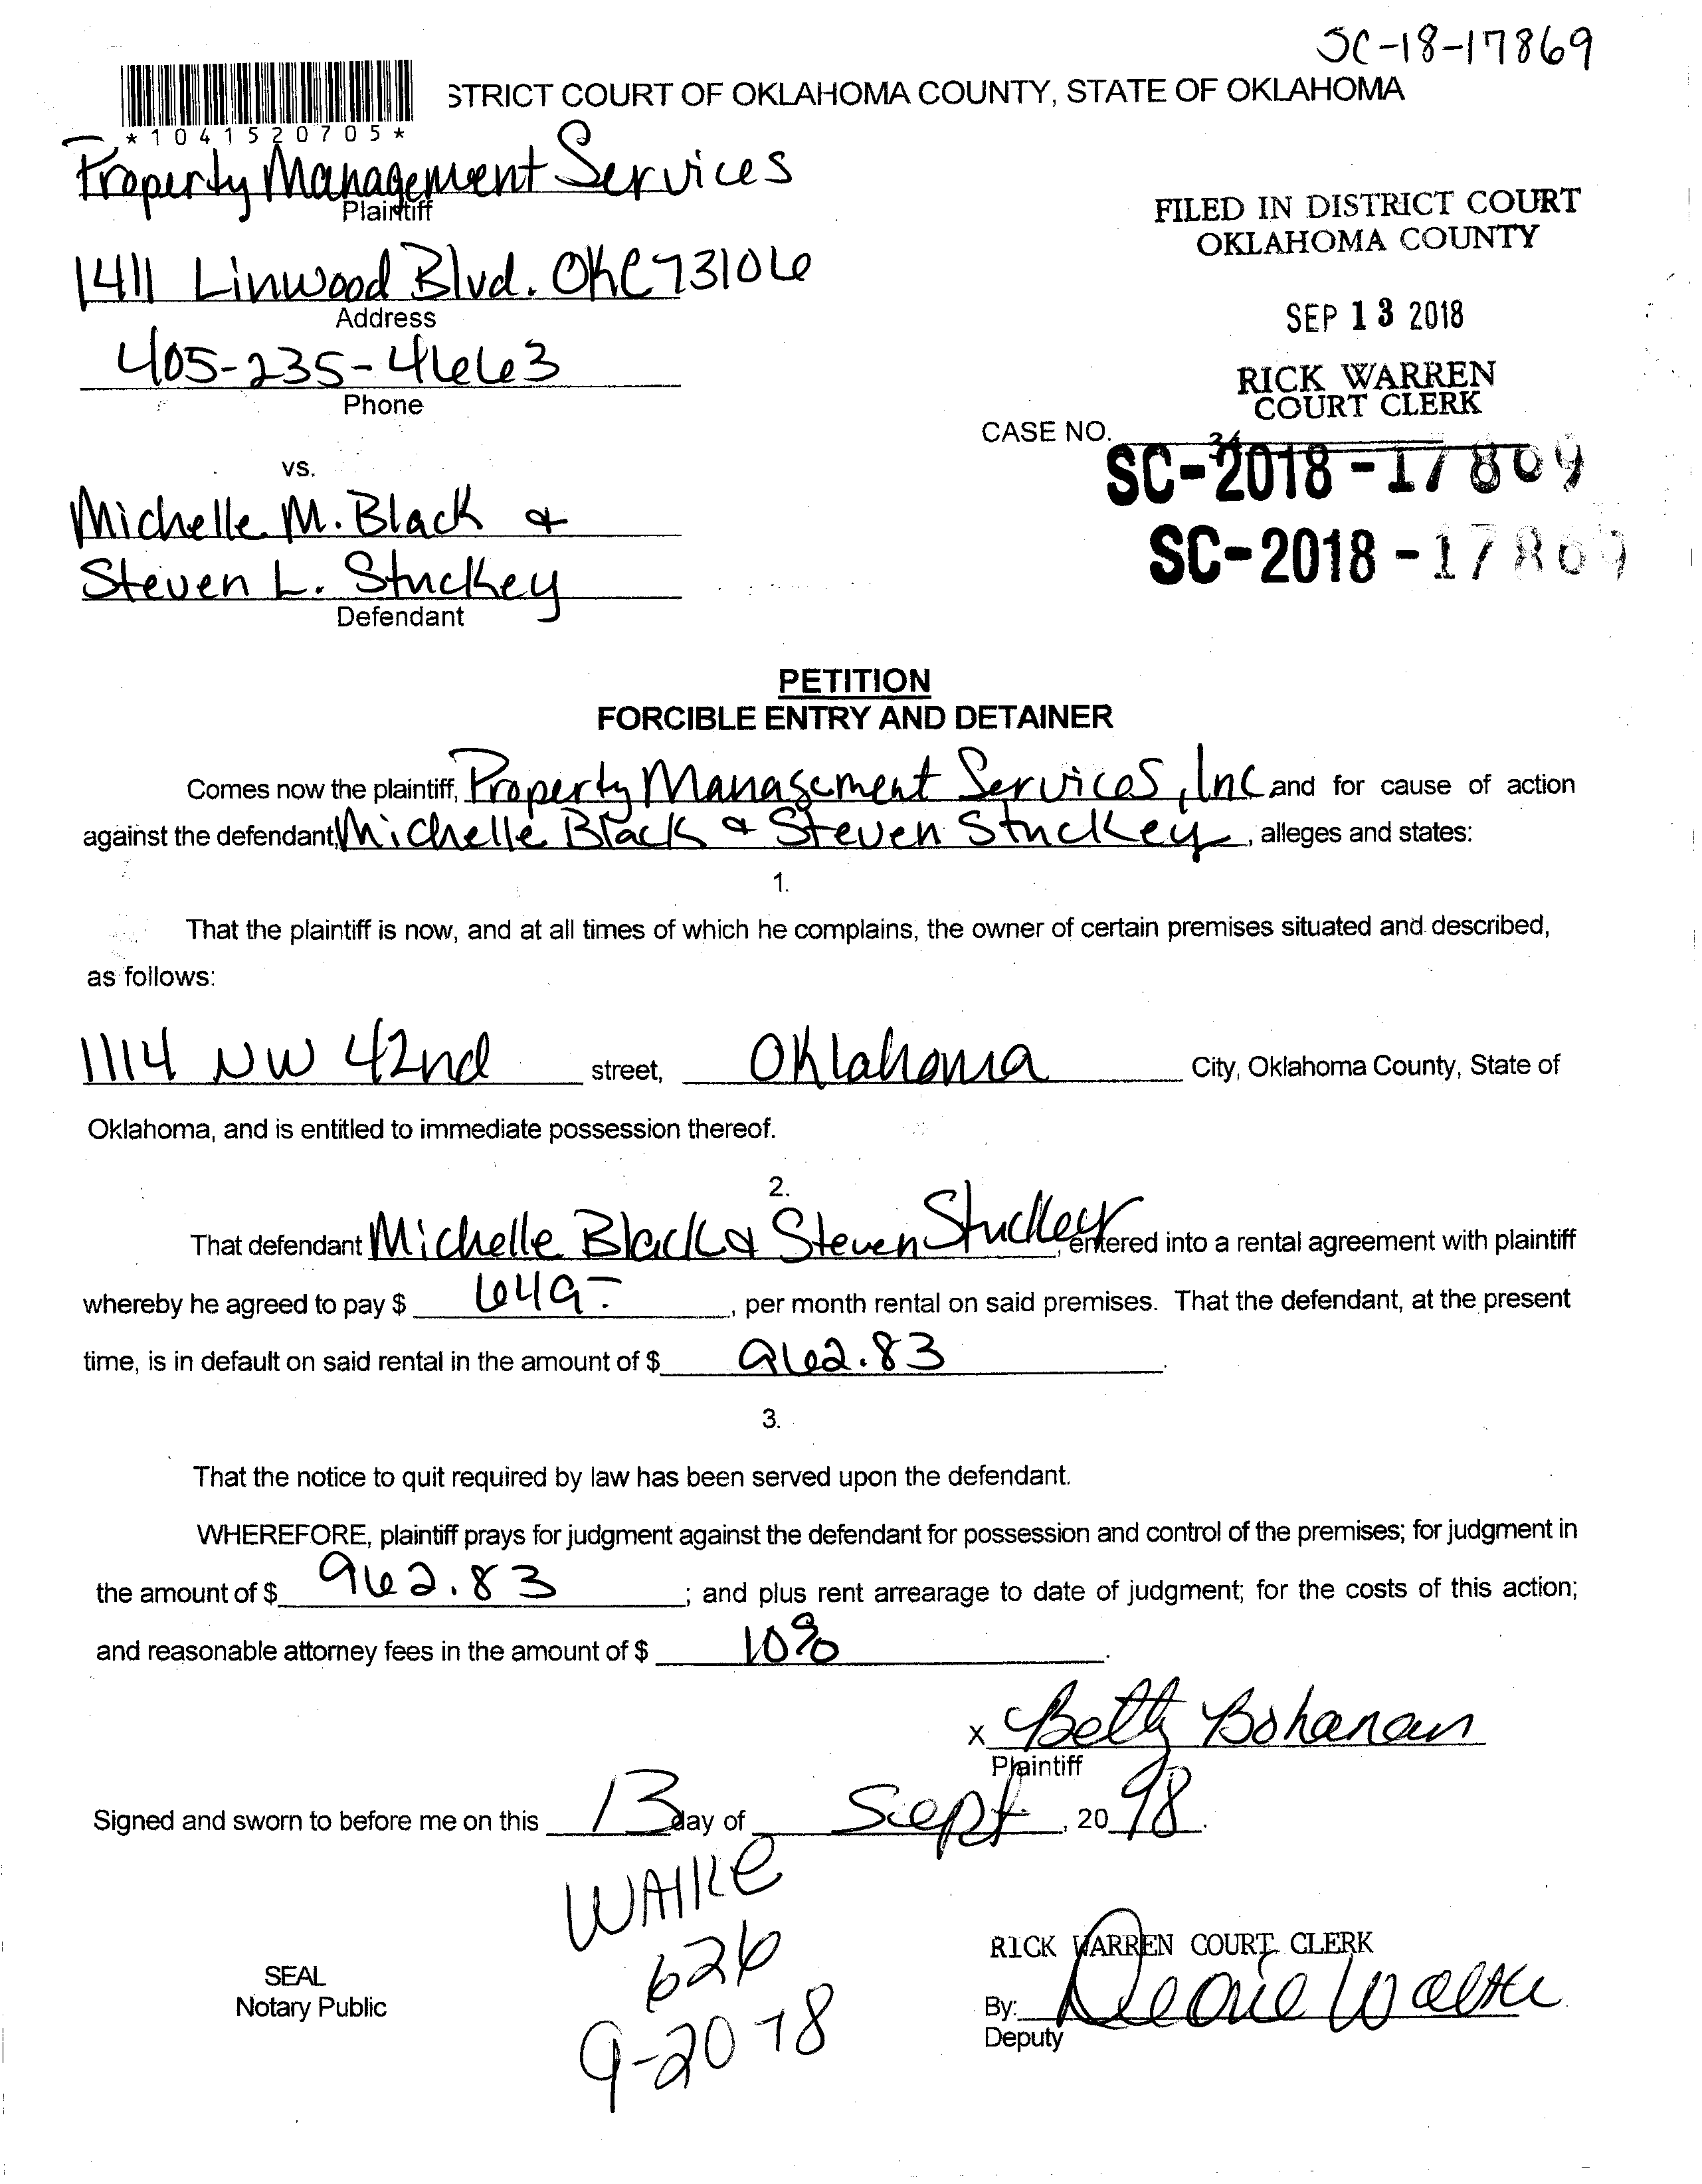 SC-18-17869
STRICT COURT OF OKLAHOMA COUNTY, STATE OF OKLAHOMA
*1041520705*
Property Management Services
Plaintiff
FILED IN DISTRICT COURT
OKLAHOMA COUNTY
1411 Linwood Blvd. OKC 73106
Address
SEP 13 2018
405-235-4663
Phone
RICK WARREN
COURT CLERK
CASE NO.
34
SC-2018-17869
vs.
Michelle M. Black &
SC-2018-17869
Steven L. Stuckey
Defendant
PETITION
FORCIBLE ENTRY AND DETAINER
Comes now the plaintiff, Property Management Services, Inc and for cause of action
against the defendant, Michelle Black & Steven Stuckey, alleges and states:
1.
That the plaintiff is now, and at all times of which he complains, the owner of certain premises situated and described,
as follows:
1114 NW 42nd street, Oklahoma City, Oklahoma County, State of
Oklahoma, and is entitled to immediate possession thereof.
2.
That defendant Michelle Black & Steven Stuckey, entered into a rental agreement with plaintiff
whereby he agreed to pay $ 649.-, per month rental on said premises. That the defendant, at the present
time, is in default on said rental in the amount of $ 962.83.
3.
That the notice to quit required by law has been served upon the defendant.
WHEREFORE, plaintiff prays for judgment against the defendant for possession and control of the premises; for judgment in
the amount of $ 962.83; and plus rent arrearage to date of judgment; for the costs of this action;
and reasonable attorney fees in the amount of $ 10%.
x Betty Bohanan
Plaintiff
Signed and sworn to before me on this 13 day of Sept, 20 18.
626
9-20-18
SEAL
Notary Public
RICK WARREN COURT CLERK
By:
Deputy